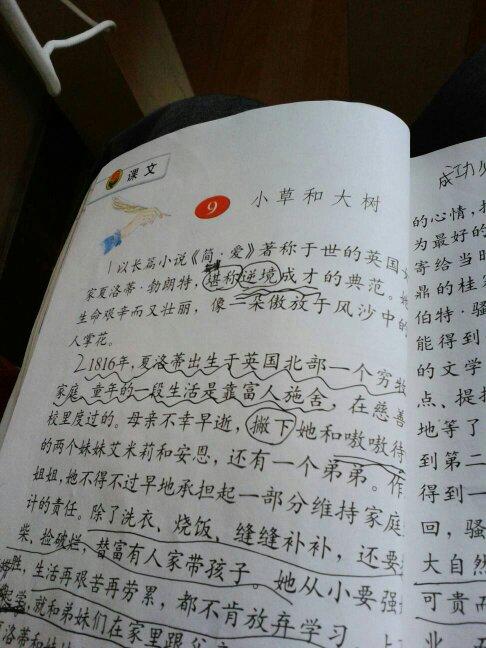 课文
9 小草和大树
1 以长篇小说《简·爱》著称于世的英国
家夏洛蒂·勃朗特,堪称逆境成才的典范。
生命艰辛而又壮丽,像一朵傲放于风沙中的
人掌花。
2 1816年,夏洛蒂出生于英国北部一个穷牧
家庭,童年的一段生活是靠富人施舍,在慈善
校里度过的。母亲不幸早逝,撇下她和嗷嗷待
的两个妹妹艾米莉和安恩,还有一个弟弟。作
姐姐,她不得不过早地承担起一部分维持家庭
计的责任。除了洗衣、烧饭、缝缝补补,还要
柴、捡破烂,替富有人家带孩子。她从小要强
胜,生活再艰苦再劳累,都不肯放弃学习,上
起学,就和弟妹们在家里跟父
洛蒂和妹
成功
的心情,
为最好的
寄给当时
鼎的桂
伯特·骚
能得到
的文学
点、提
地等了
到第二
得到一
回,骚
大自然
可贵而
业,